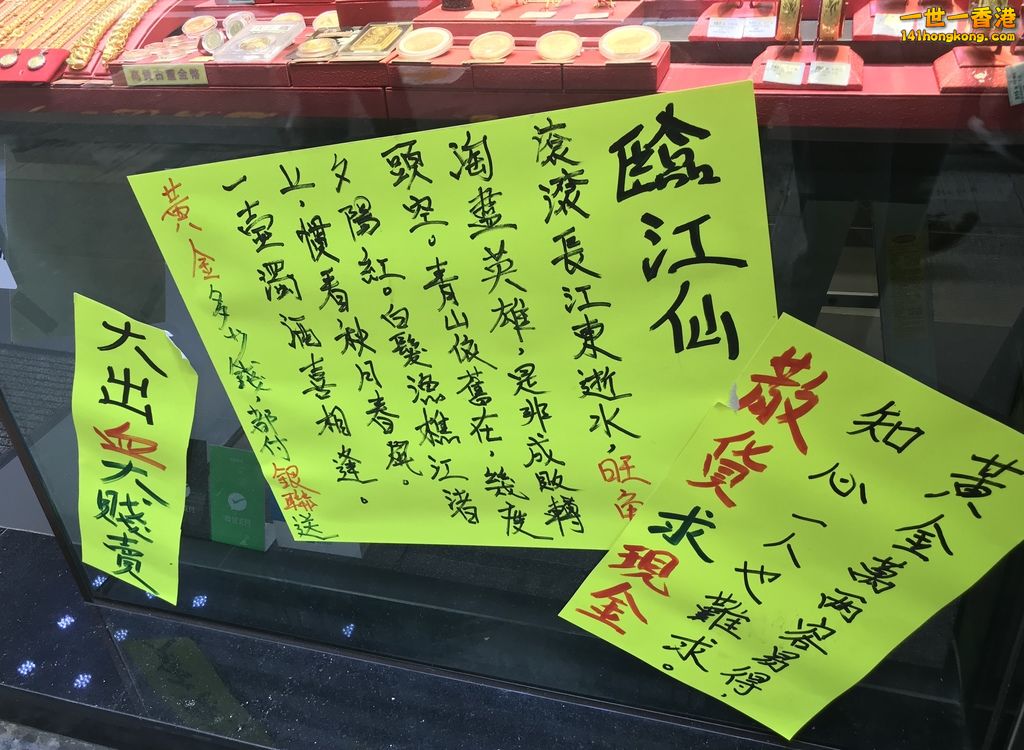 一世一香港
141hongkong.com
臨江仙
滾滾長江東逝水，旺角
淘盡英雄，是非成敗轉
頭空。青山依舊在，幾度
夕陽紅。白髮漁樵江渚
上，慣看秋月春風。
一壺濁酒喜相逢。
黃金多少錢，都付銀聯送
黃金萬两容易得，
知心一人也難求。
散貨求現金
大出血大賤賣